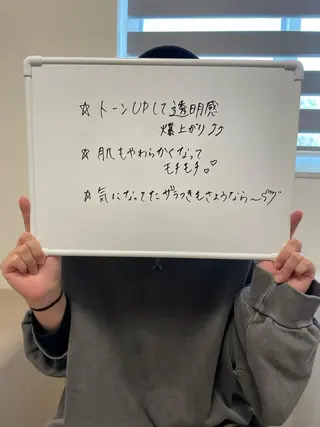 ☆ トーンUPして透明感
爆上がり⤴⤴
☆ 肌もやわらかくなって
モチモチ♡
☆ 気になってたザラつきもさようなら〜